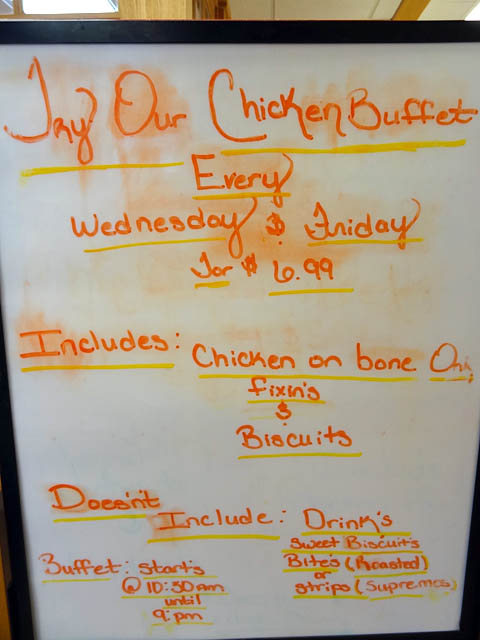 Try Our Chicken Buffet
Every
Wednesday & Friday
For $ 6.99
Includes: Chicken on bone Only
fixin's
&
Biscuits
Doesn't
Include: Drink's
Sweet Biscuit's
Bite's (Roasted)
or
strips (Supremes)
Buffet: start's
@ 10:30 am
until
9: pm